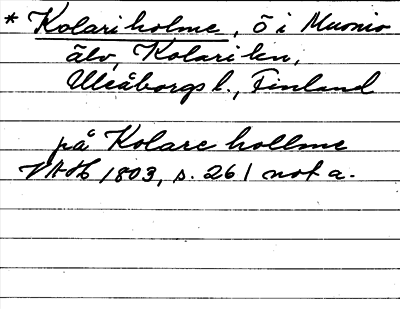 * Kolariholme, ö i Muonio
älv, Kolari kn,
Uleåborgs l., Finland
på Kolare hollme
VAH 1803, s. 261 not a.